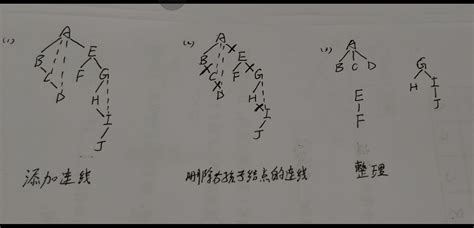 (1)
A
B E
C F G
D H
I
J
添加连线
(2)
A
B E
C F G
D H
I
J
删除与孩子结点的连线
(3)
A
B C D
E
F
G
H I
J
整理